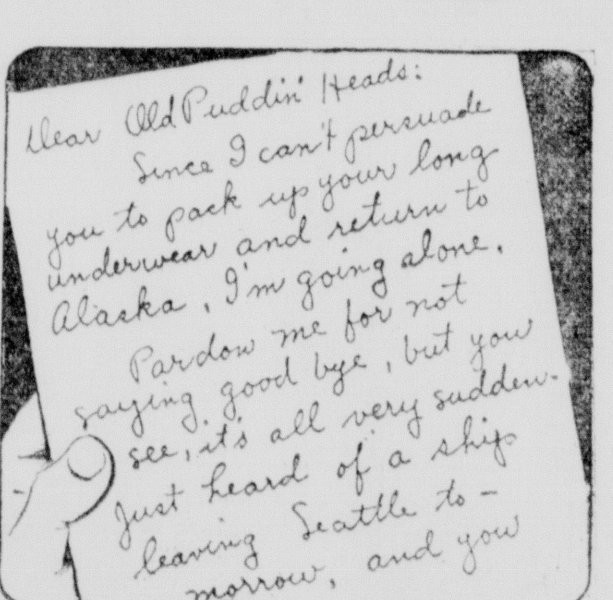 Dear Old Puddin' Heads:
Since I can't persuade
you to pack up your long
underwear and return to
Alaska, I'm going alone.
Pardon me for not
saying good bye, but you
see, it's all very sudden.
Just heard of a ship
leaving Seattle to-
morrow, and you